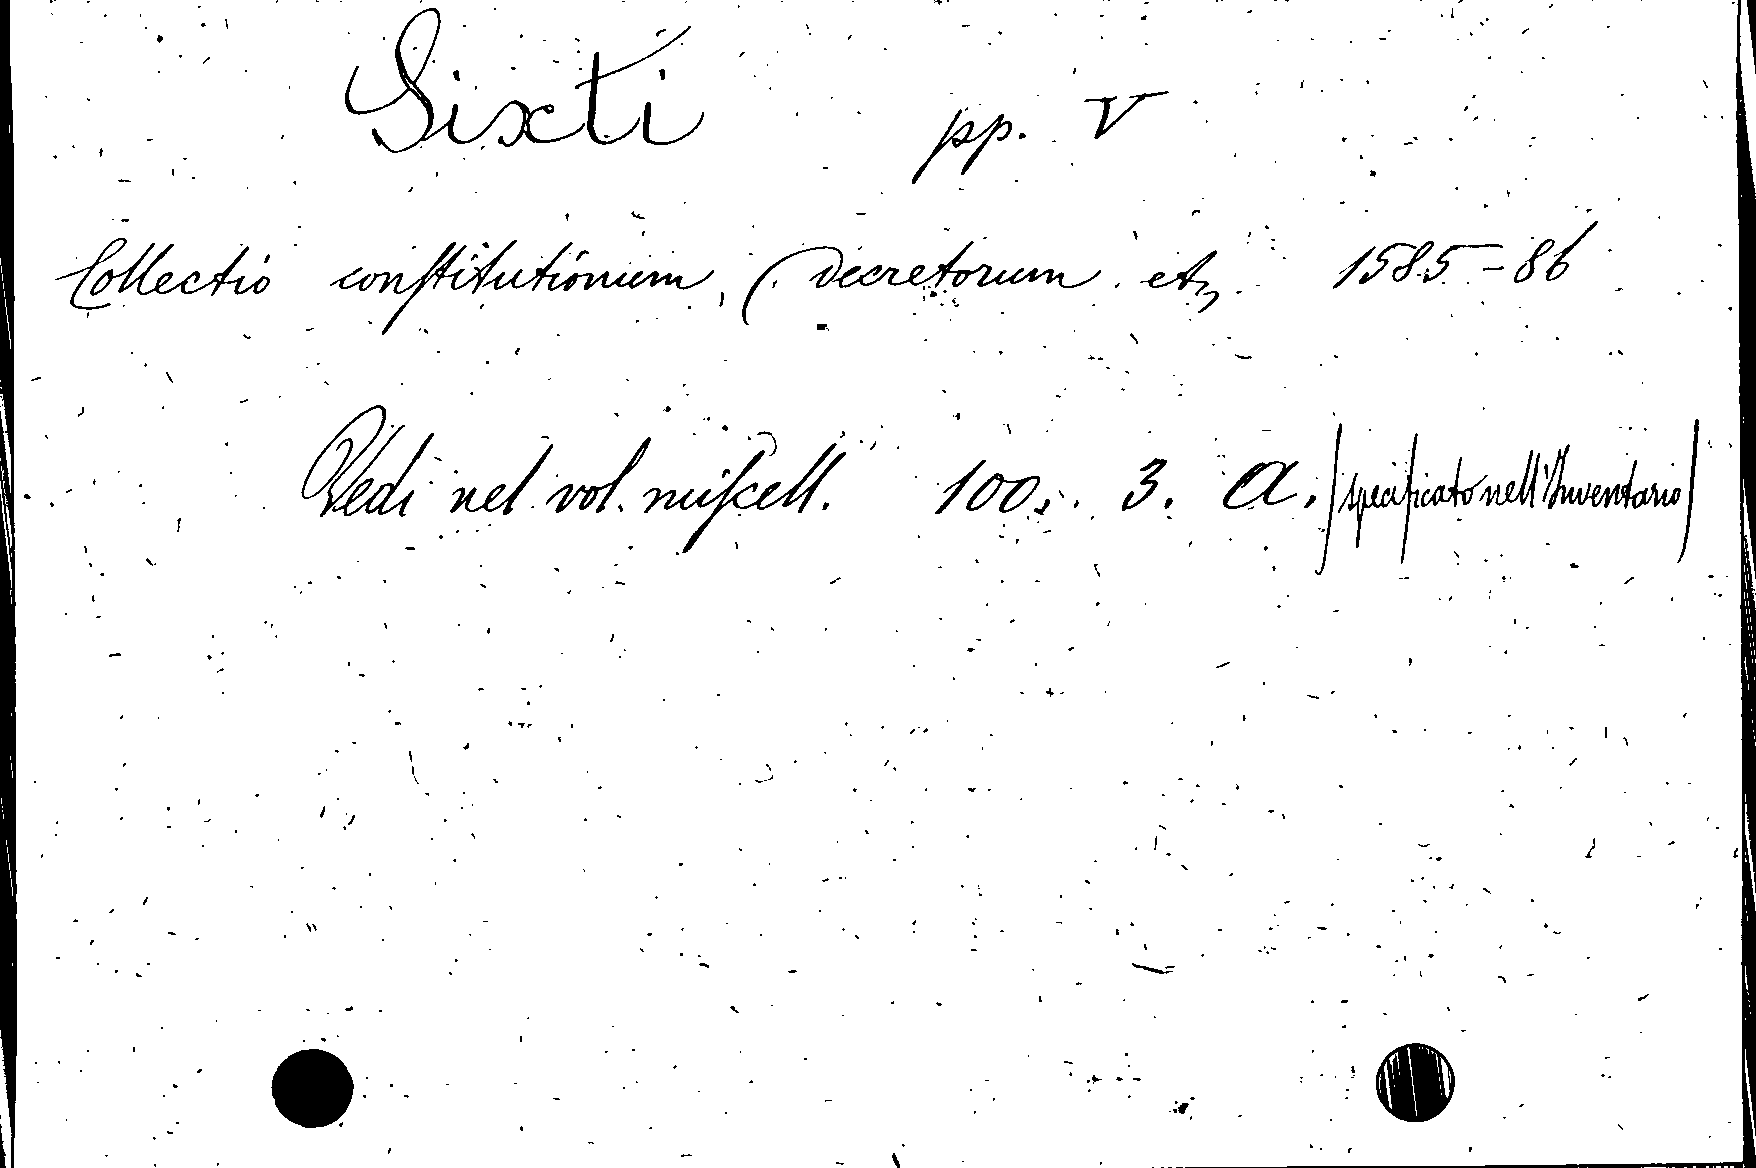 Sixti pp. V
Collectio conſtitutionum, (decretorum etc 1585-86
Vedi nel vol. miſcell. 100. 3. A. /specificato nell'Inventario/